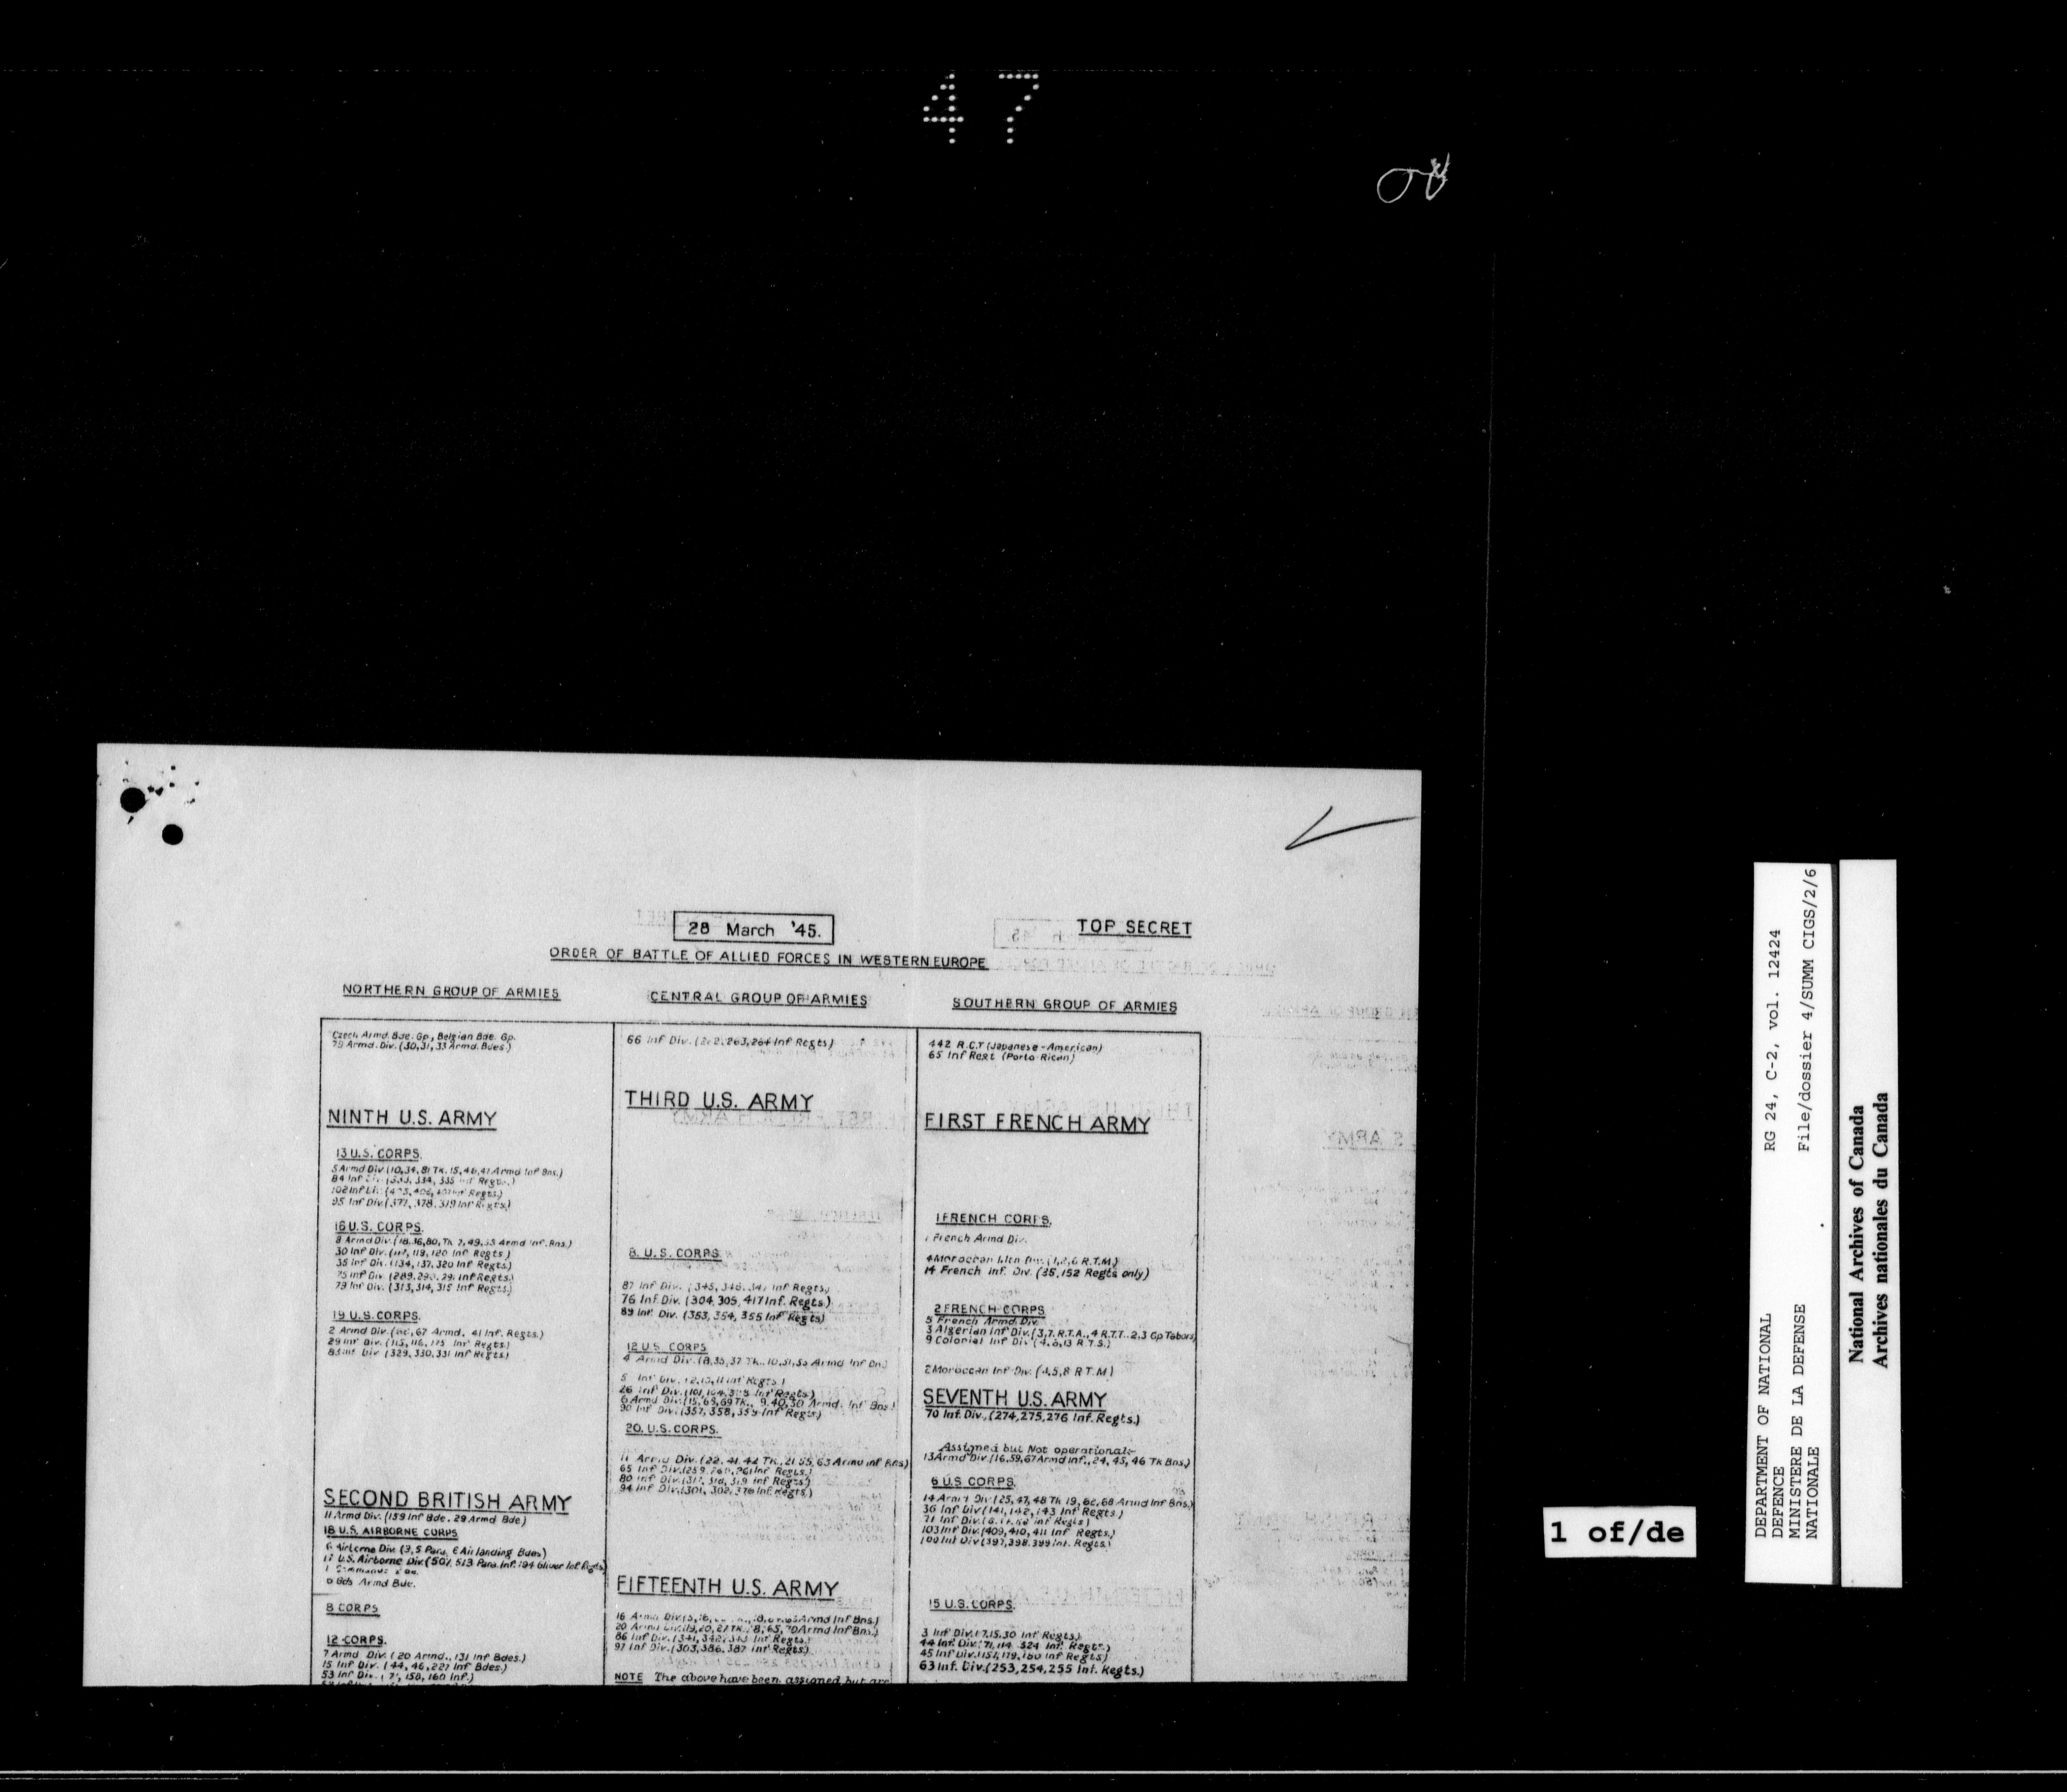 47
28 March '45.
TOP SECRET
ORDER OF BATTLE OF ALLIED FORCES IN WESTERN EUROPE
NORTHERN GROUP OF ARMIES
Czech Armd. Bde. Gp., Belgian Bde. Gp.
79 Armd. Div. (30,31,33 Armd. Bdes.)
NINTH U.S. ARMY
13 U.S. CORPS.
5 Armd Div (10,34,81 TK. 15,46,47 Armd Inf Bns.)
84 Inf Div (333, 334, 335 Inf Regts.)
102 Inf Div (405, 406, 407 Inf Regts.)
95 Inf Div. (377, 378, 379 Inf Regts.)
16 U.S. CORPS.
8 Armd Div. (18,36,80, Tk 7,49,53 Armd Inf. Bns.)
30 Inf Div. (117, 119, 120 Inf Regts.)
35 Inf Div. (134, 137, 320 Inf Regts.)
75 Inf Div (289, 290, 291 Inf Regts.)
79 Inf Div. (313, 314, 315 Inf Regts.)
19 U.S. CORPS.
2 Armd Div. (66, 67 Armd. 41 Inf. Regts.)
29 Inf Div. (115, 116, 175 Inf Regts.)
83 Inf Div (329, 330, 331 Inf Regts.)
SECOND BRITISH ARMY
11 Armd Div. (159 Inf Bde. 29 Armd Bde.)
18 U.S. AIRBORNE CORPS
6 Airborne Div. (3,5 Para, 6 Airlanding Bdes)
17 U.S. Airborne Div. (507, 513 Para. Inf. 194 Glider Inf Regts)
1 Commando Bde.
6 Gds Armd Bde.
8 CORPS
12 CORPS.
7 Armd Div. (20 Armd., 131 Inf Bdes.)
15 Inf Div. (44, 46, 227 Inf Bdes.)
53 Inf Div. (71, 158, 160 Inf.)
CENTRAL GROUP OF ARMIES
66 Inf Div. (262,263,264 Inf Regts)
THIRD U.S. ARMY
8. U.S. CORPS
87 Inf Div. (345, 346, 347 Inf Regts)
76 Inf Div. (304, 305, 417 Inf. Regts.)
89 Inf. Div. (353, 354, 355 Inf Regts)
12 U.S. CORPS
4 Armd Div. (8,35,37 TK. 10,51,53 Armd Inf Bn.)
5 Inf Div. (2,10,11 Inf Regts.)
26 Inf Div. (101,104,328 Inf Regts)
6 Armd Div. (15,68,69 TK., 9,40,50 Armd. Inf Bns.)
90 Inf Div. (357, 358, 359 Inf Regts)
20. U.S. CORPS.
11 Armd Div. (22, 41, 42 TK., 21,55,63 Armd Inf Bns)
65 Inf Div. (259, 260, 261 Inf Regts.)
80 Inf Div. (317, 318, 319 Inf Regts)
94 Inf Div. (301, 302, 376 Inf Regts)
FIFTEENTH U.S. ARMY
16 Armd Div Armd Inf Bns.)
20 Armd Div. (9,20,27 TK., 8,65,70 Armd Inf Bns.)
86 Inf Div. (341, 342, 343 Inf Regts.)
97 Inf Div. (303,386, 387 Inf Regts)
NOTE The above have been assigned but are
SOUTHERN GROUP OF ARMIES
442 R.C.T (Japanese-American)
65 Inf Regt (Porto Rican)
FIRST FRENCH ARMY
1 FRENCH CORPS.
1 French Armd Div.
4 Moroccan Mtn Div. (1,2,6 R.T.M.)
14 French Inf. Div. (35,152 Regts only)
2 FRENCH CORPS
5 French Armd. Div.
3 Algerian Inf Div. (3,7. R.T.A., 4 R.T.T. 2,3 Gp Tabors)
9 Colonial Inf Div. (4,6,13 R.T.S.)
2 Moroccan Inf Div. (4,5,8 R.T.M)
SEVENTH U.S. ARMY
70 Inf. Div., (274,275,276 Inf. Regts.)
Assigned but Not operational:-
13 Armd Div (16,59,67 Armd Inf., 24, 45, 46 Tk Bns.)
6 U.S CORPS.
14 Armd Div (25,47,48 Tk 19, 62, 68 Armd Inf Bns.)
36 Inf Div (141,142,143 Inf Regts.)
71 Inf Div. Inf Regts)
103 Inf Div. (409,410,411 Inf Regts.)
100 Inf Div (397,398,399 Inf. Regts.)
15 U.S. CORPS.
3 Inf Div. (7,15,30 Inf Regts)
44 Inf. Div. (71,114, 324 Inf. Regts.)
45 Inf Div. (157,179,180 Inf Regts)
63 Inf. Div. (253,254,255 Inf. Regts.)
1 of/de
DEPARTMENT OF NATIONAL
DEFENCE
MINISTERE DE LA DEFENSE
NATIONALE
RG 24, C-2, vol. 12424
File/dossier 4/SUMM CIGS/2/6
National Archives of Canada
Archives nationales du Canada